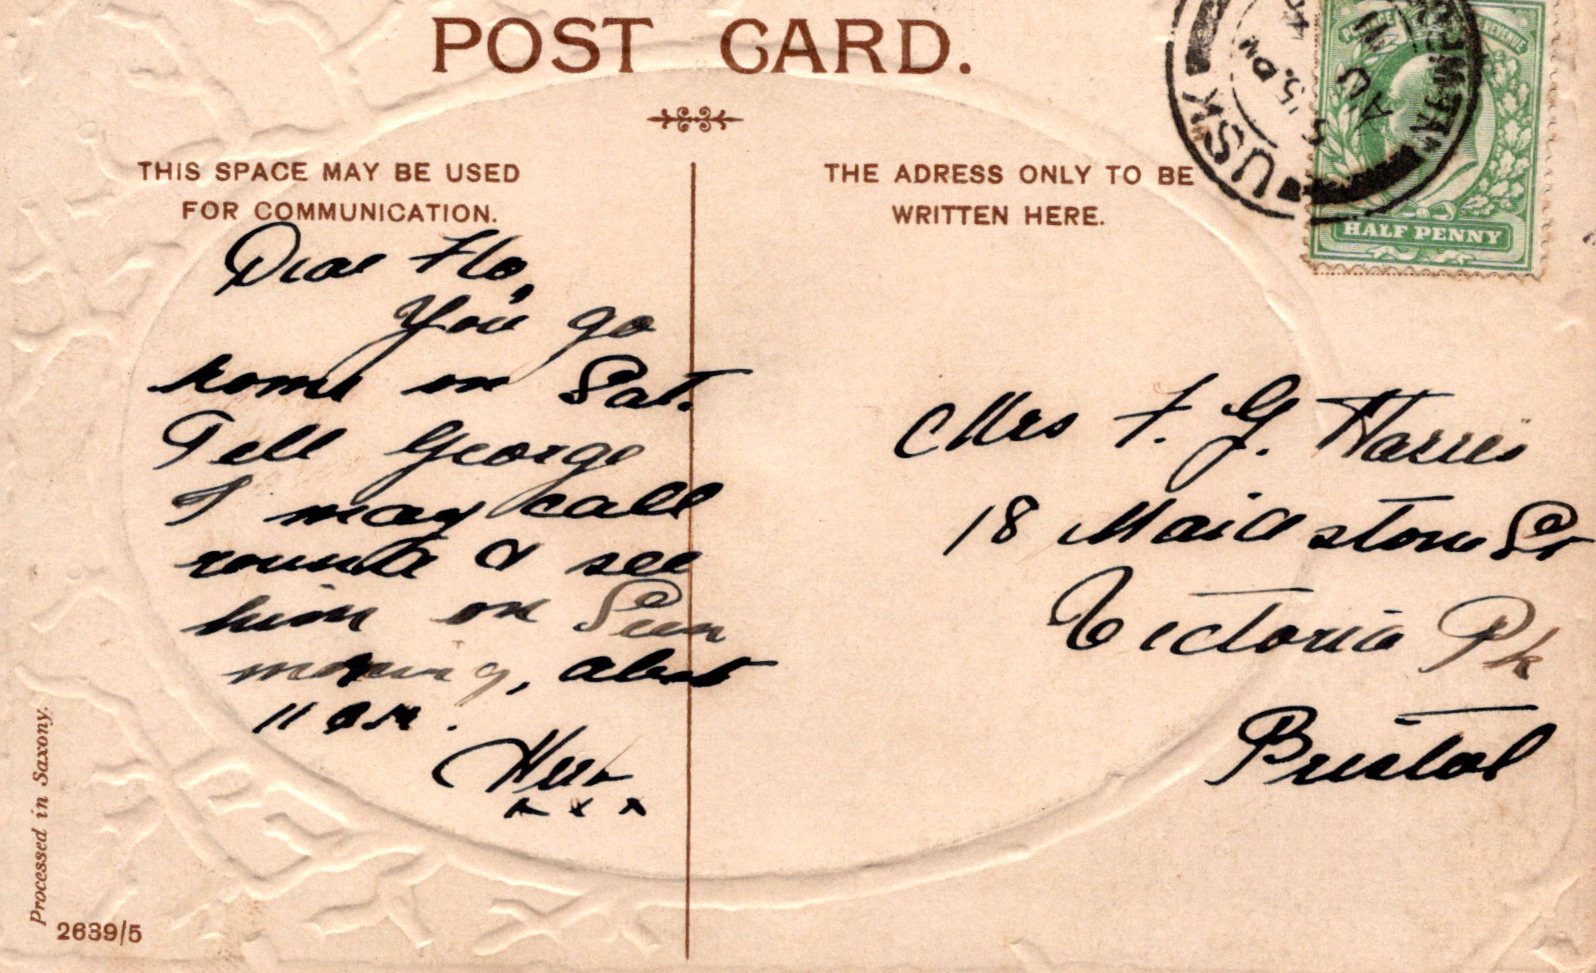 POST CARD.
THIS SPACE MAY BE USED
FOR COMMUNICATION.
THE ADRESS ONLY TO BE
WRITTEN HERE.
USK
5.15 PM
AU 11
POSTAGE REVENUE
HALF PENNY
Dear Flo,
You go
home on Sat.
Tell George
I may call
round & see
him on Sun
morning, about
11 am.
x x x
Mrs F. G. Harris
18 Maidstone St
Victoria Pk
Bristol
Processed in Saxony.
2639/5